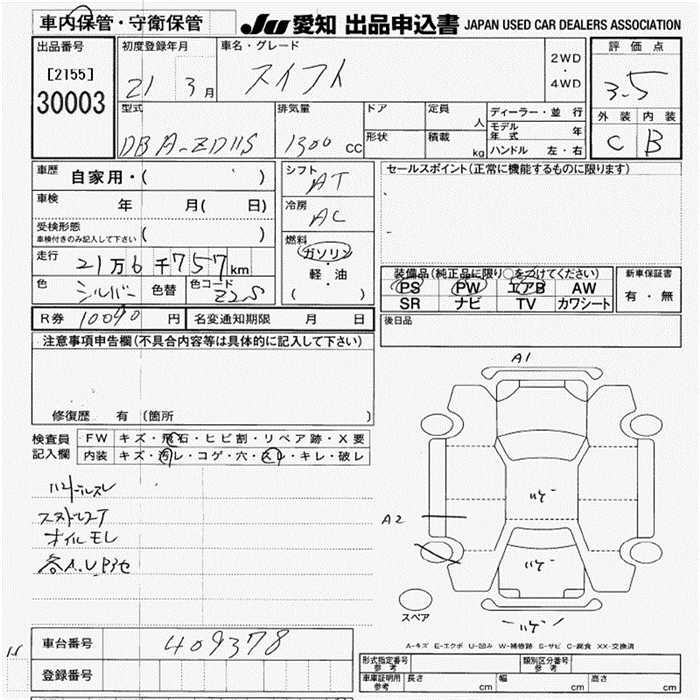 車内保管・守衛保管 JU 愛知 出品申込書 JAPAN USED CAR DEALERS ASSOCIATION
出品番号 初度登録年月 車名・グレード 評価点
[2155] 21 3月 スイフト 2WD・4WD 3.5
30003
型式 排気量 ドア 定員 人 ディーラー・並行 外装 内装
DBA-ZD11S 1300cc 形状 積載 kg モデル年式 年 C B
ハンドル 左・右
車歴 自家用・( ) シフト AT セールスポイント(正常に機能するものに限ります)
車検 年 月( 日) 冷房 AC
受検形態
車検付きのみ記入して下さい ( )
燃料
走行 21万6千757km ガソリン・軽・油
( )
色 シルバー 色替 色コード Z2S
装備品(純正品に限り○をつけてください) 新車保証書
PS PW エアB AW 有・無
SR ナビ TV カワシート
R券 10090円 名変通知期限 月 日 後日品
注意事項申告欄(不具合内容等は具体的に記入して下さい)
A1
修復歴 有 (箇所 )
検査員記入欄 FW キズ・飛石・ヒビ割・リペア跡・X要
内装 キズ・汚レ・コゲ・穴・スレ・キレ・破レ
ハンドルスレ
A2
オイルモレ
各A.Uアリ
スペア
A-キズ E-エクボ U-凹み W-補修跡 S-サビ C-腐食 XX-交換済
車台番号 409378
形式指定番号参考 類別区分番号参考
登録番号
車庫証明用参考 長さ cm 幅 cm 高さ cm